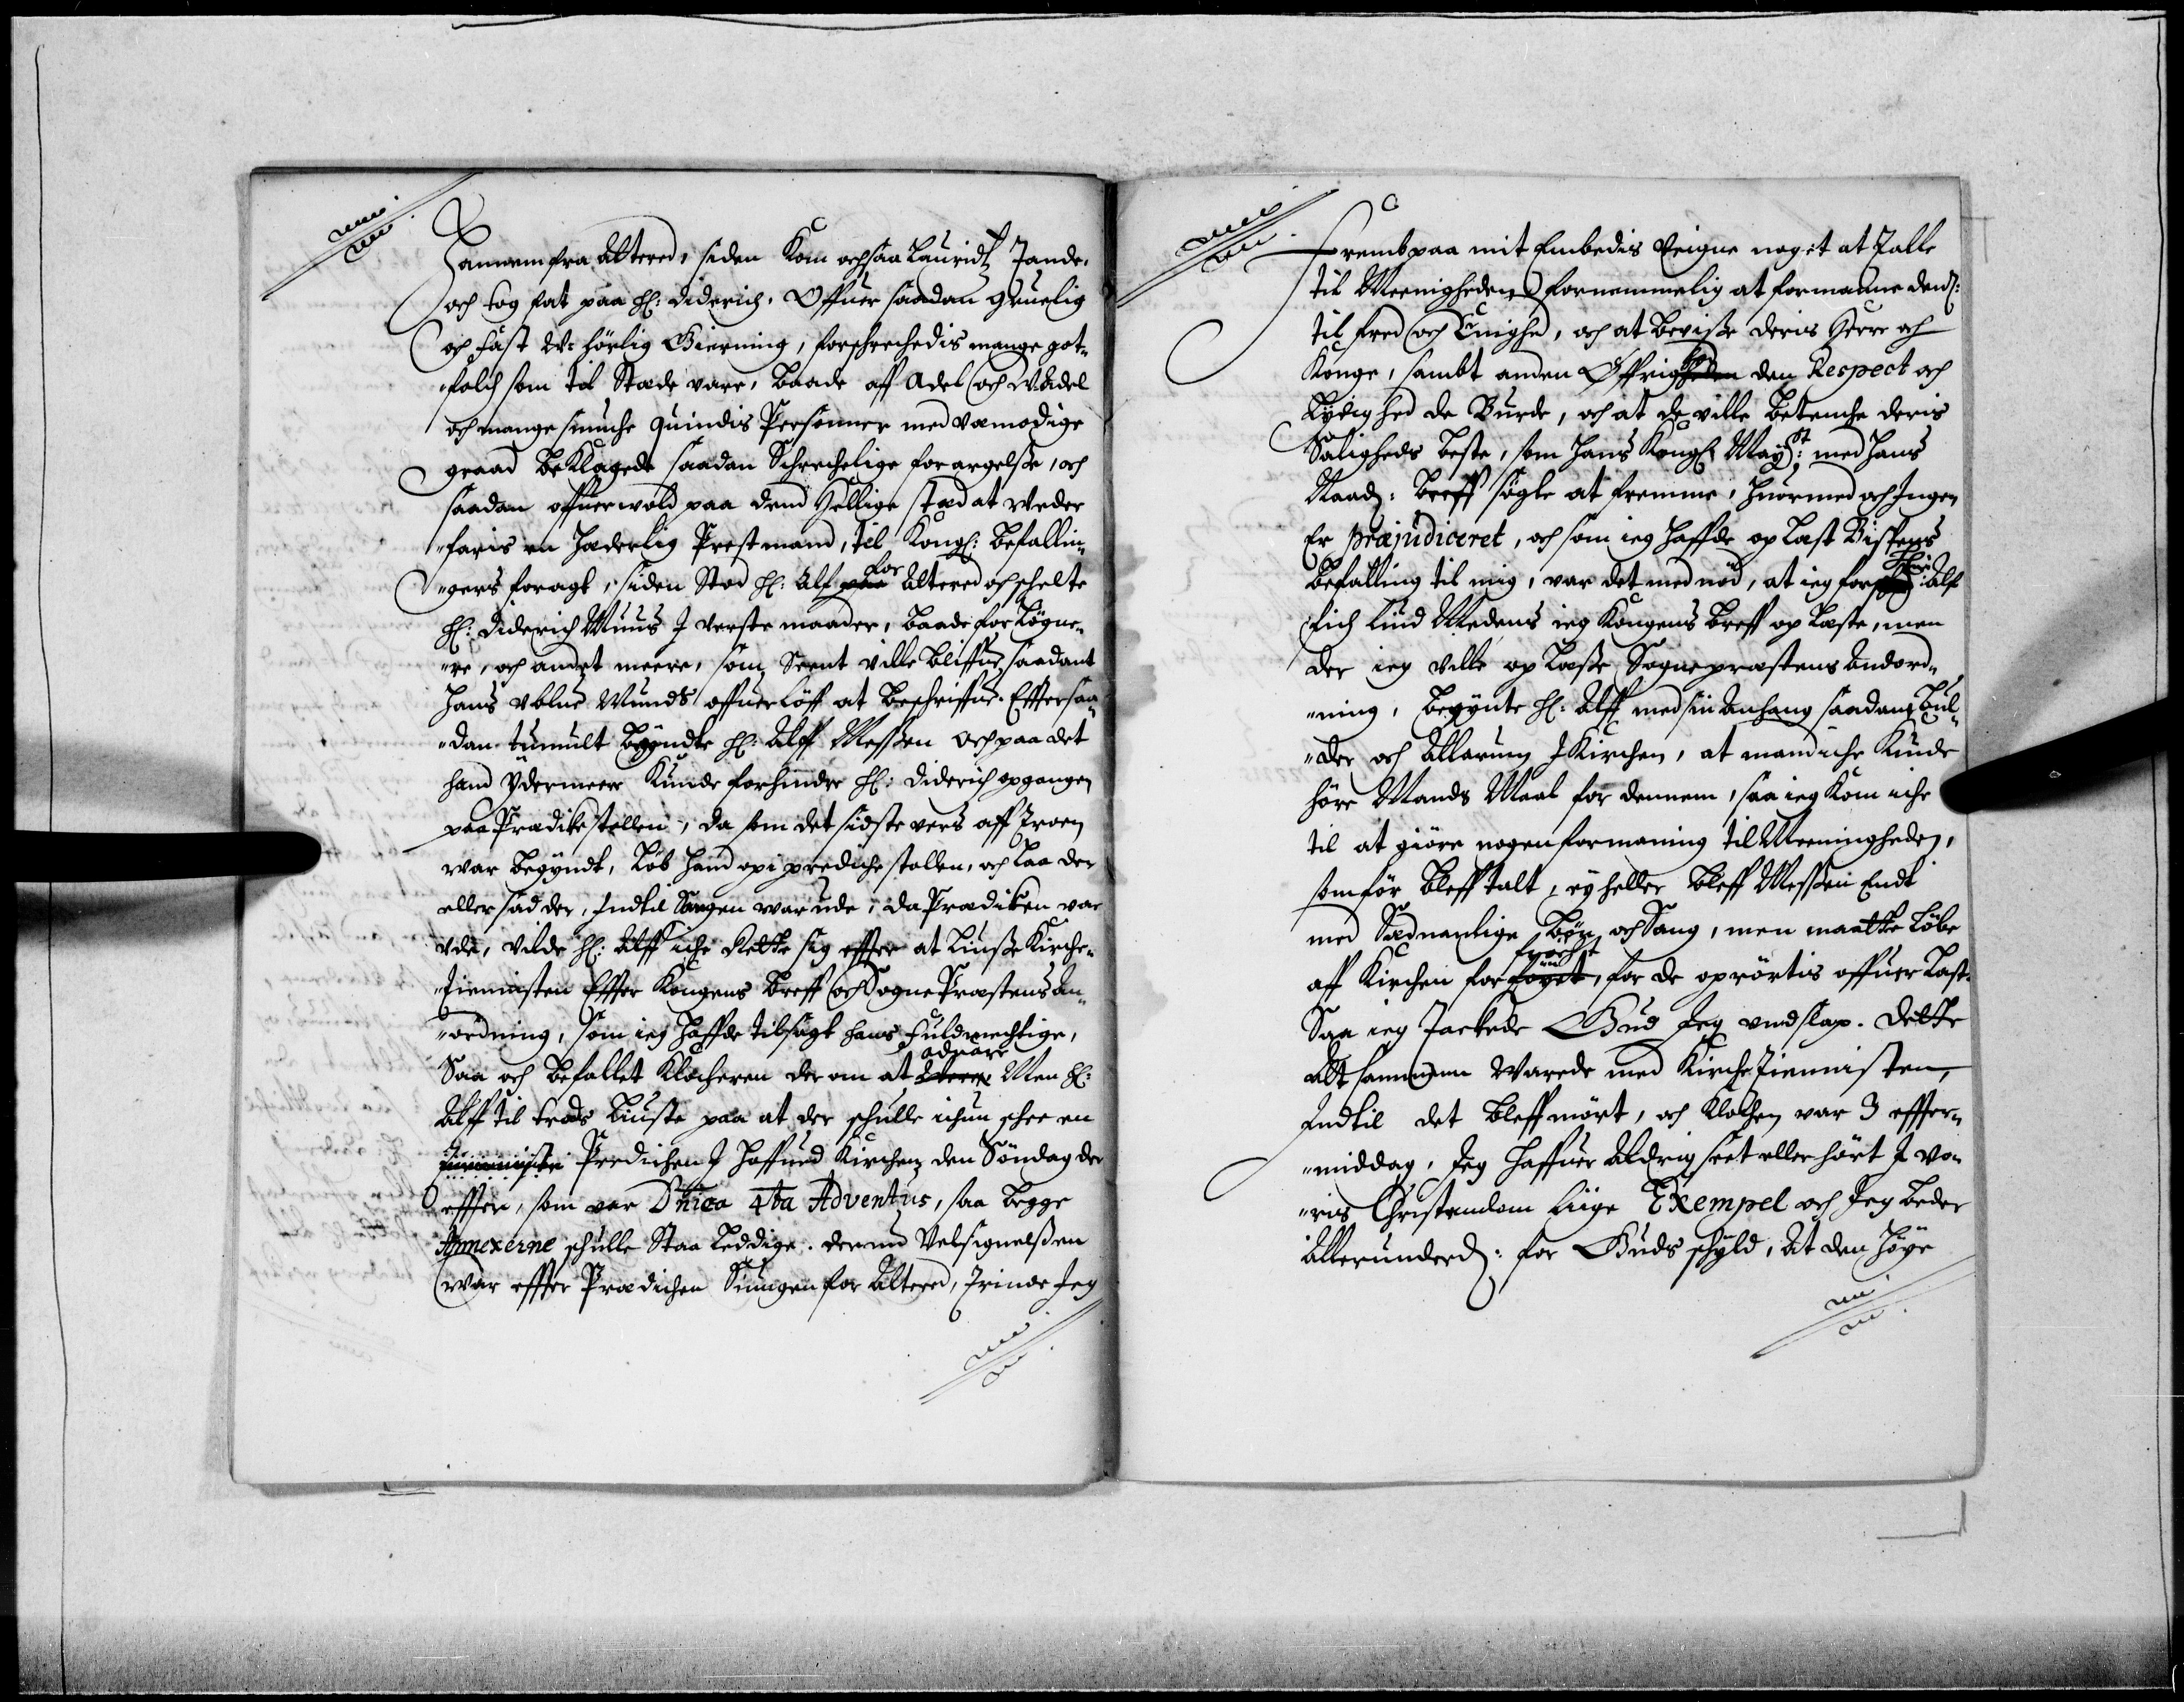 hannem fra Altered, siden Kom ochsaa Lauridtz Jande,
och tog fat paa H: Diderich. Offuer saadan gruelig
och fast W-hørlig Gierning, forschrechedis mange got¬
folch som til Stæde vare, baade aff Adel och UAdel
och mange smuche quindis Persønner med væmodige
graad beKlagede saadan Schrechelige forargelsse, och
saadan offuerwold paa dend Hellige stæd at weder
faris en hæderlig Prestmand, til Kongl: Befallin¬
gers foragt, siden Stod H: Alf for Altered och schelte
H: Diderich Muus I verste maader, baade for Løgne¬
re, och andet meere, som Seent ville bliffue saadant
Hans ublue Munds offuerløff at beschriffue. Effter saa¬
dan tumult begyndte H: Alff Messen och paa det
hand ydermeere Kunde forhindre H: Diderich opgangen
paa Prædikestollen, da som det sidste vers aff Troen
war begyndt, Løb hand op i predichestollen, och laa der
eller sad der, indtil Sangen war ude, da Prædiken var
vde, vilde H: Alff iche Rette sig effter at liusse Kirche¬
Tienisten Effter Kongens breff och Sogne Præstens An¬
ordning, som ieg haffde tilsagt hans fuldmechtige,
Saa och befallet Klocheren der om at aduare Men H:
Alff til trods liuste paa at der schulle ichun schee en
Predichen I Haffued Kirchen den Søndag der
effter, som var Dnica 4ta Adventus, saa begge
Annexerne schulle Staa Leddige. der nu Velsignelssen
war effter Prædichen Siungen for Altered, Trinde Jeg
Frembpaa mit Embedis Veigne noget at Talle
til Meenigheden fornemmelig at formanne dend:
til fred och Enighed, och at bevisse deris Herre och
Konge, sambt anden Øffrighed den Respect och
Lydighed de burde, och at de ville betenche deris
Saligheds beste, som Hans Kongl: May:st: med Hans
Naad: breff søgte at fremme, huormed och Ingen
Er præjudiceret, och som ieg haffde op læst Bispens
befalling til mig, var det med nød, at ieg for H: Alf
fich liud Medens ieg Kongens breff op læste, men
der ieg ville op læsse Sognepræstens Andord¬
ning, begynte H: Alff med sin Anhang saadan bul¬
der och Allarum I Kirchen, at mand iche Kunde
høre Mands Maal for dennem, saa ieg Kom iche
til at giøre nogen formaning til Meenigheden,
som før bleff talt, ey heller bleff Messen Endt
med Sædvanlige bøn och Sang, men maatte løbe
aff Kirchen for frøcht, for de oprørtis offuer last.
Saa ieg Tackede Gud Jeg undslap. Dette
Alt sammen Warede med Kirche Tiennisten,
Indtil det bleff mørt, och Klochen var 3 effter¬
middag, Jeg haffuer Aldrig seet eller hørt I vo¬
ris Christendom liige Exempel och Jeg beder
Allerunderd: for Guds schyld, At den høye